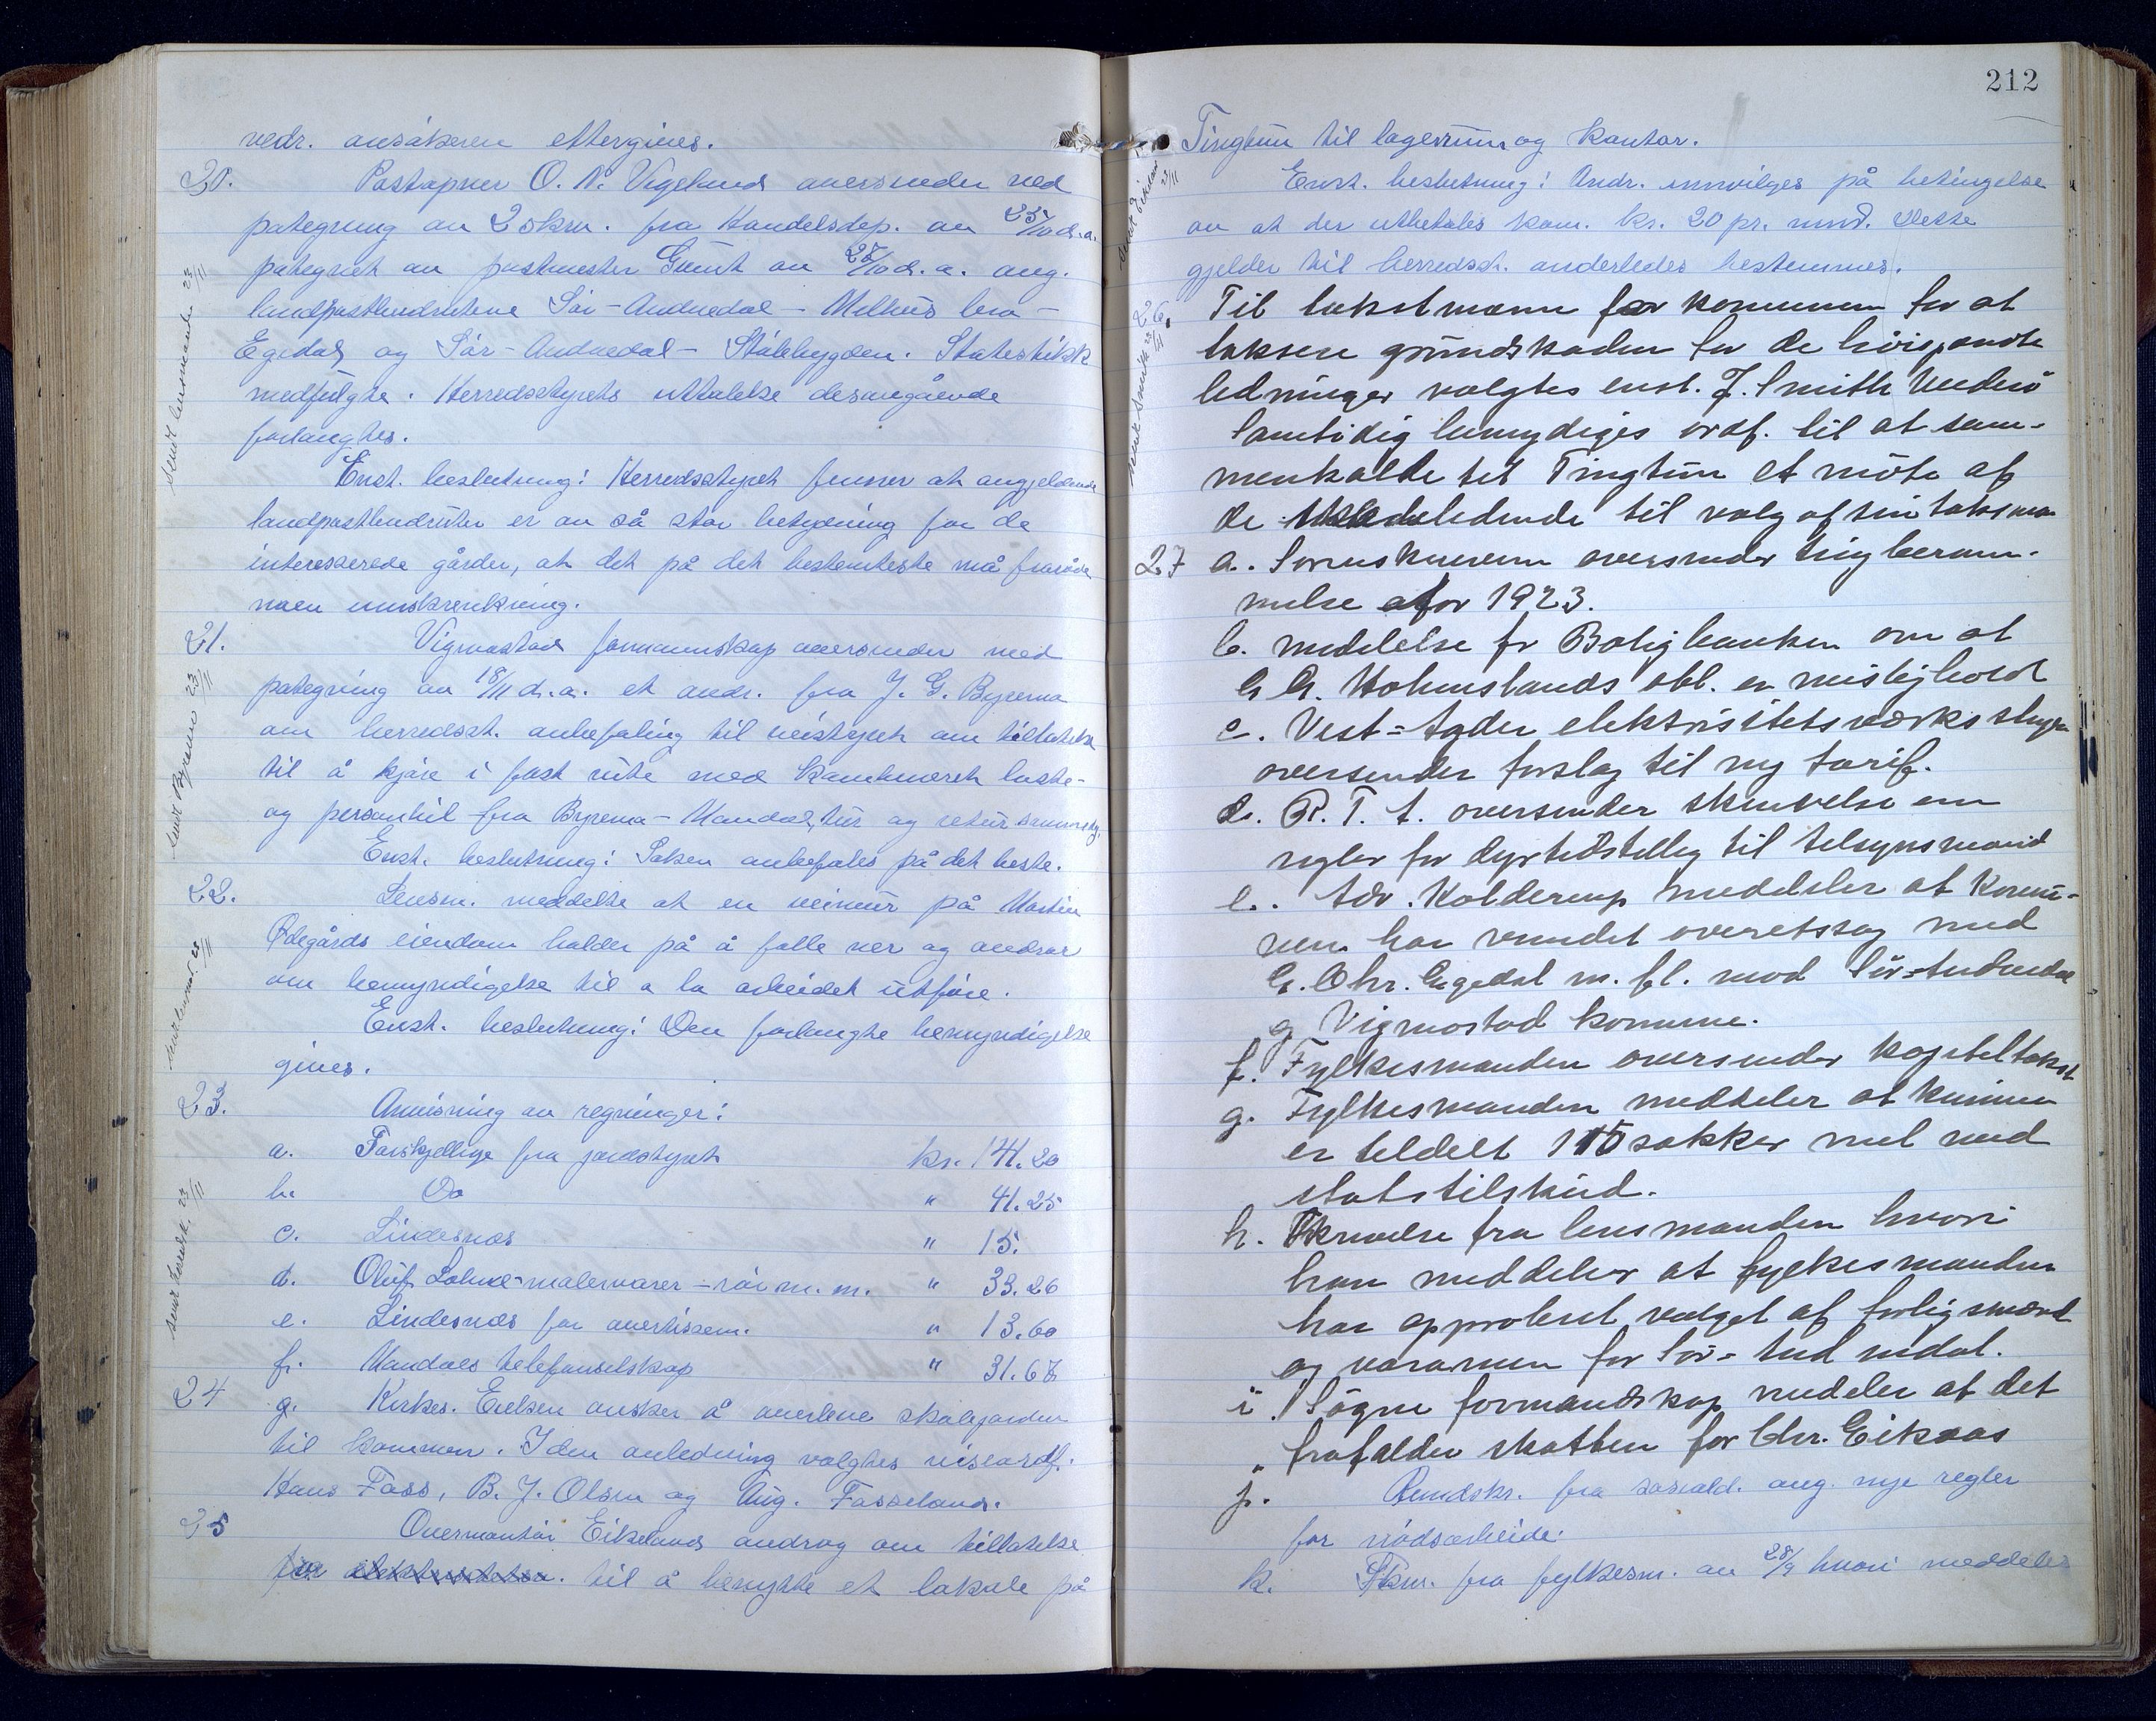 vedr. ansökeren eftergives.
20. Postapner O. N. Vigelands oversender med
pategning av 2 skrv. fra Handelsdep. av 25/10 d.a.
pategnet av postmester Grimt av 28/10 d.a. ang.
landpostbudrutene Sör-Audnedal - Melhus bro -
Egedal og Sör-Audnedal - Stålebygden. Statestikk
medfulgte. Herredsstyrets uttalelse desangående
forlangtes.
Enst. beslutning: Herredsstyret finner at angjeldende
landpostbudruter er av så stor betydning for de
interesserede gårder, at det på det bestemteste må fraråde
noen innskrenkning.
21. Vigmostad formannskap oversender med
pategning av 18/11 d.a. et andr. fra J. G. Bryerma
om herredsst. anbefaling til veistyret om tillatelse
til å kjöre i fast rute med kombineret laste-
og personbil fra Bryerma - Mandal, tur og retur
Enst. beslutning: Saken anbefales på det beste.
22. Lensm. meddelte at en veimur på Martin
Ödegårds eiendom holder på å falle ner og androe
om bemyndigelse til a la arbeidet utföre.
Enst. beslutning: Den forlangte bemyndigelse
gives.
23. Anvisning av regninger:
a. Forskjellige fra jordstyret kr. 141.20
b. Do " 41.25
c. Lindesnes " 15.
d. Oluf Lohne - malervarer - rör m. m. " 33.26
e. Lindesnes for avertissem. " 13.60
f. Mandals telefonselskap " 31.67
24 g. Kirkes. Eielsen önsker å overlene skolejorden
til kommunen. I den anledning valgtes viseordf.
Hans Foss, B. J. Olsen og Aug. Fasseland.
25 Overmontör Eikelands androg om tillatelse
til å benytte et lokale på
sendt lensmanden 23/11
sendt Bryerma 23/11
sendt lensmand 23/11
212
Tingtun til lagerrum og kontor.
Enst. beslutning: Andr. innvilges på betingelse
av at der utbetales kom. kr. 20 pr. mnd. Dette
gjelder til herredsst. anderledes bestemmes.
26. Til takstmann for kommunen for at
taksere grundskaden for de höispændte
ledninger valgtes enst. J. Smith Underö
Samtidig bemydiges ordf. til at sam-
menkalde til Tingtun et möte af
de vedkommende til valg af sin taksman
27 a. Sorenskriveren oversender tingberam-
melse for 1923.
b. meddelelse fr Boligbanken om at
G. A. Holmslands obl. er misligholdt
c. Vest-Agder elektrisitetsværks styre
oversender forslag til ny tarif.
d. R. T. A. oversender skrivelse om
regler for dyrtidstillæg til tilsynsmænd
e. Adv. Kolderup meddeler at Komu-
nen har vundet overetssag med
G. Chr. Egedal m. fl. mod Sör-Audnedal
og Vigmostad komune.
f. Fylkesmanden oversender kapiteltakst
g. Fylkesmanden meddeler at kumunen
er tildelt 115 sækker mel med
statstilskud.
h. Skrivelse fra lensmanden hvori
han meddeler at fylkesmanden
har approbert valget af forligsmænd
og varamen for Sör-Audnedal.
i. Sögne formandskap meddeler at det
frafalder skatten for Chr. Eikaas
j. Rundskr. fra sosiald. ang. nye regler
for nödsarbeide.
k. Skriv. fra fylkesm. av 28/9 hvori meddeles